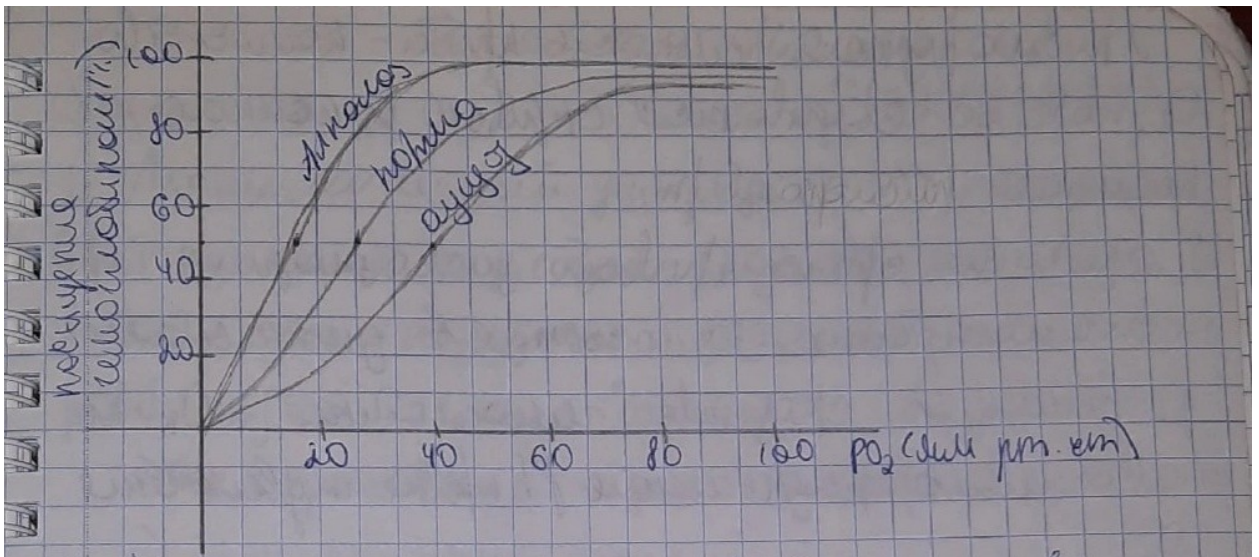 насыщение
гемоглобином (%)
100
80
60
40
20
Алкалоз
норма
ацидоз
20 40 60 80 100 PO₂ (мм рт. ст)